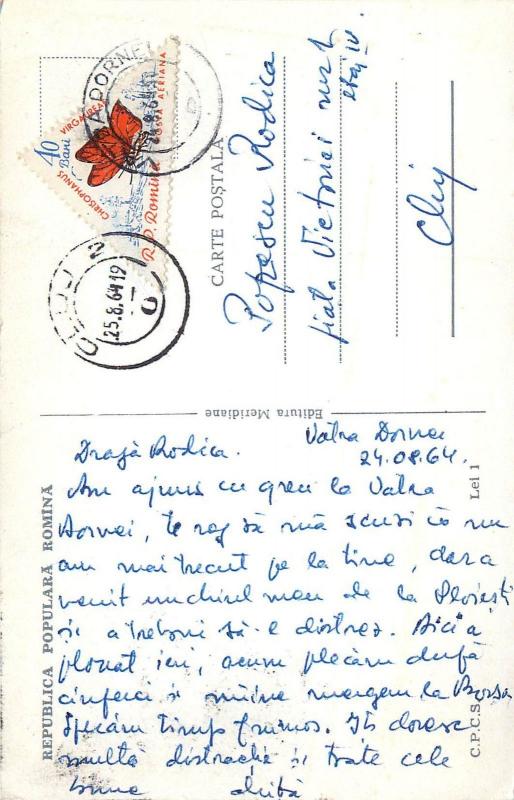 CARTE POȘTALĂ
Popescu Rodica
piața Victoriei nr 21
etaj IV
Cluj
40 Bani
CHRISOPHANUS VIRGAUREAE
POSTA AERIANA
R.P. Romina
DORNEI
CLUJ 2
25.8.64 19
Editura Meridiane
REPUBLICA POPULARĂ ROMINĂ
C.P.C.S.
Lei 1
Dragă Rodica. Vatra Dornei
24.08.64.
Am ajuns cu greu la Vatra
Dornei, te rog să mă scuzi că nu
am mai trecut pe la tine, dar a
venit unchiul meu de la Ploiești
și a trebuit să-l distrez. Aici a
plouat ieri, acum plecăm după
ciuperci și mîine mergem la Borsa.
Sperăm timp frumos. Iți doresc
multă distracție și toate cele
bune